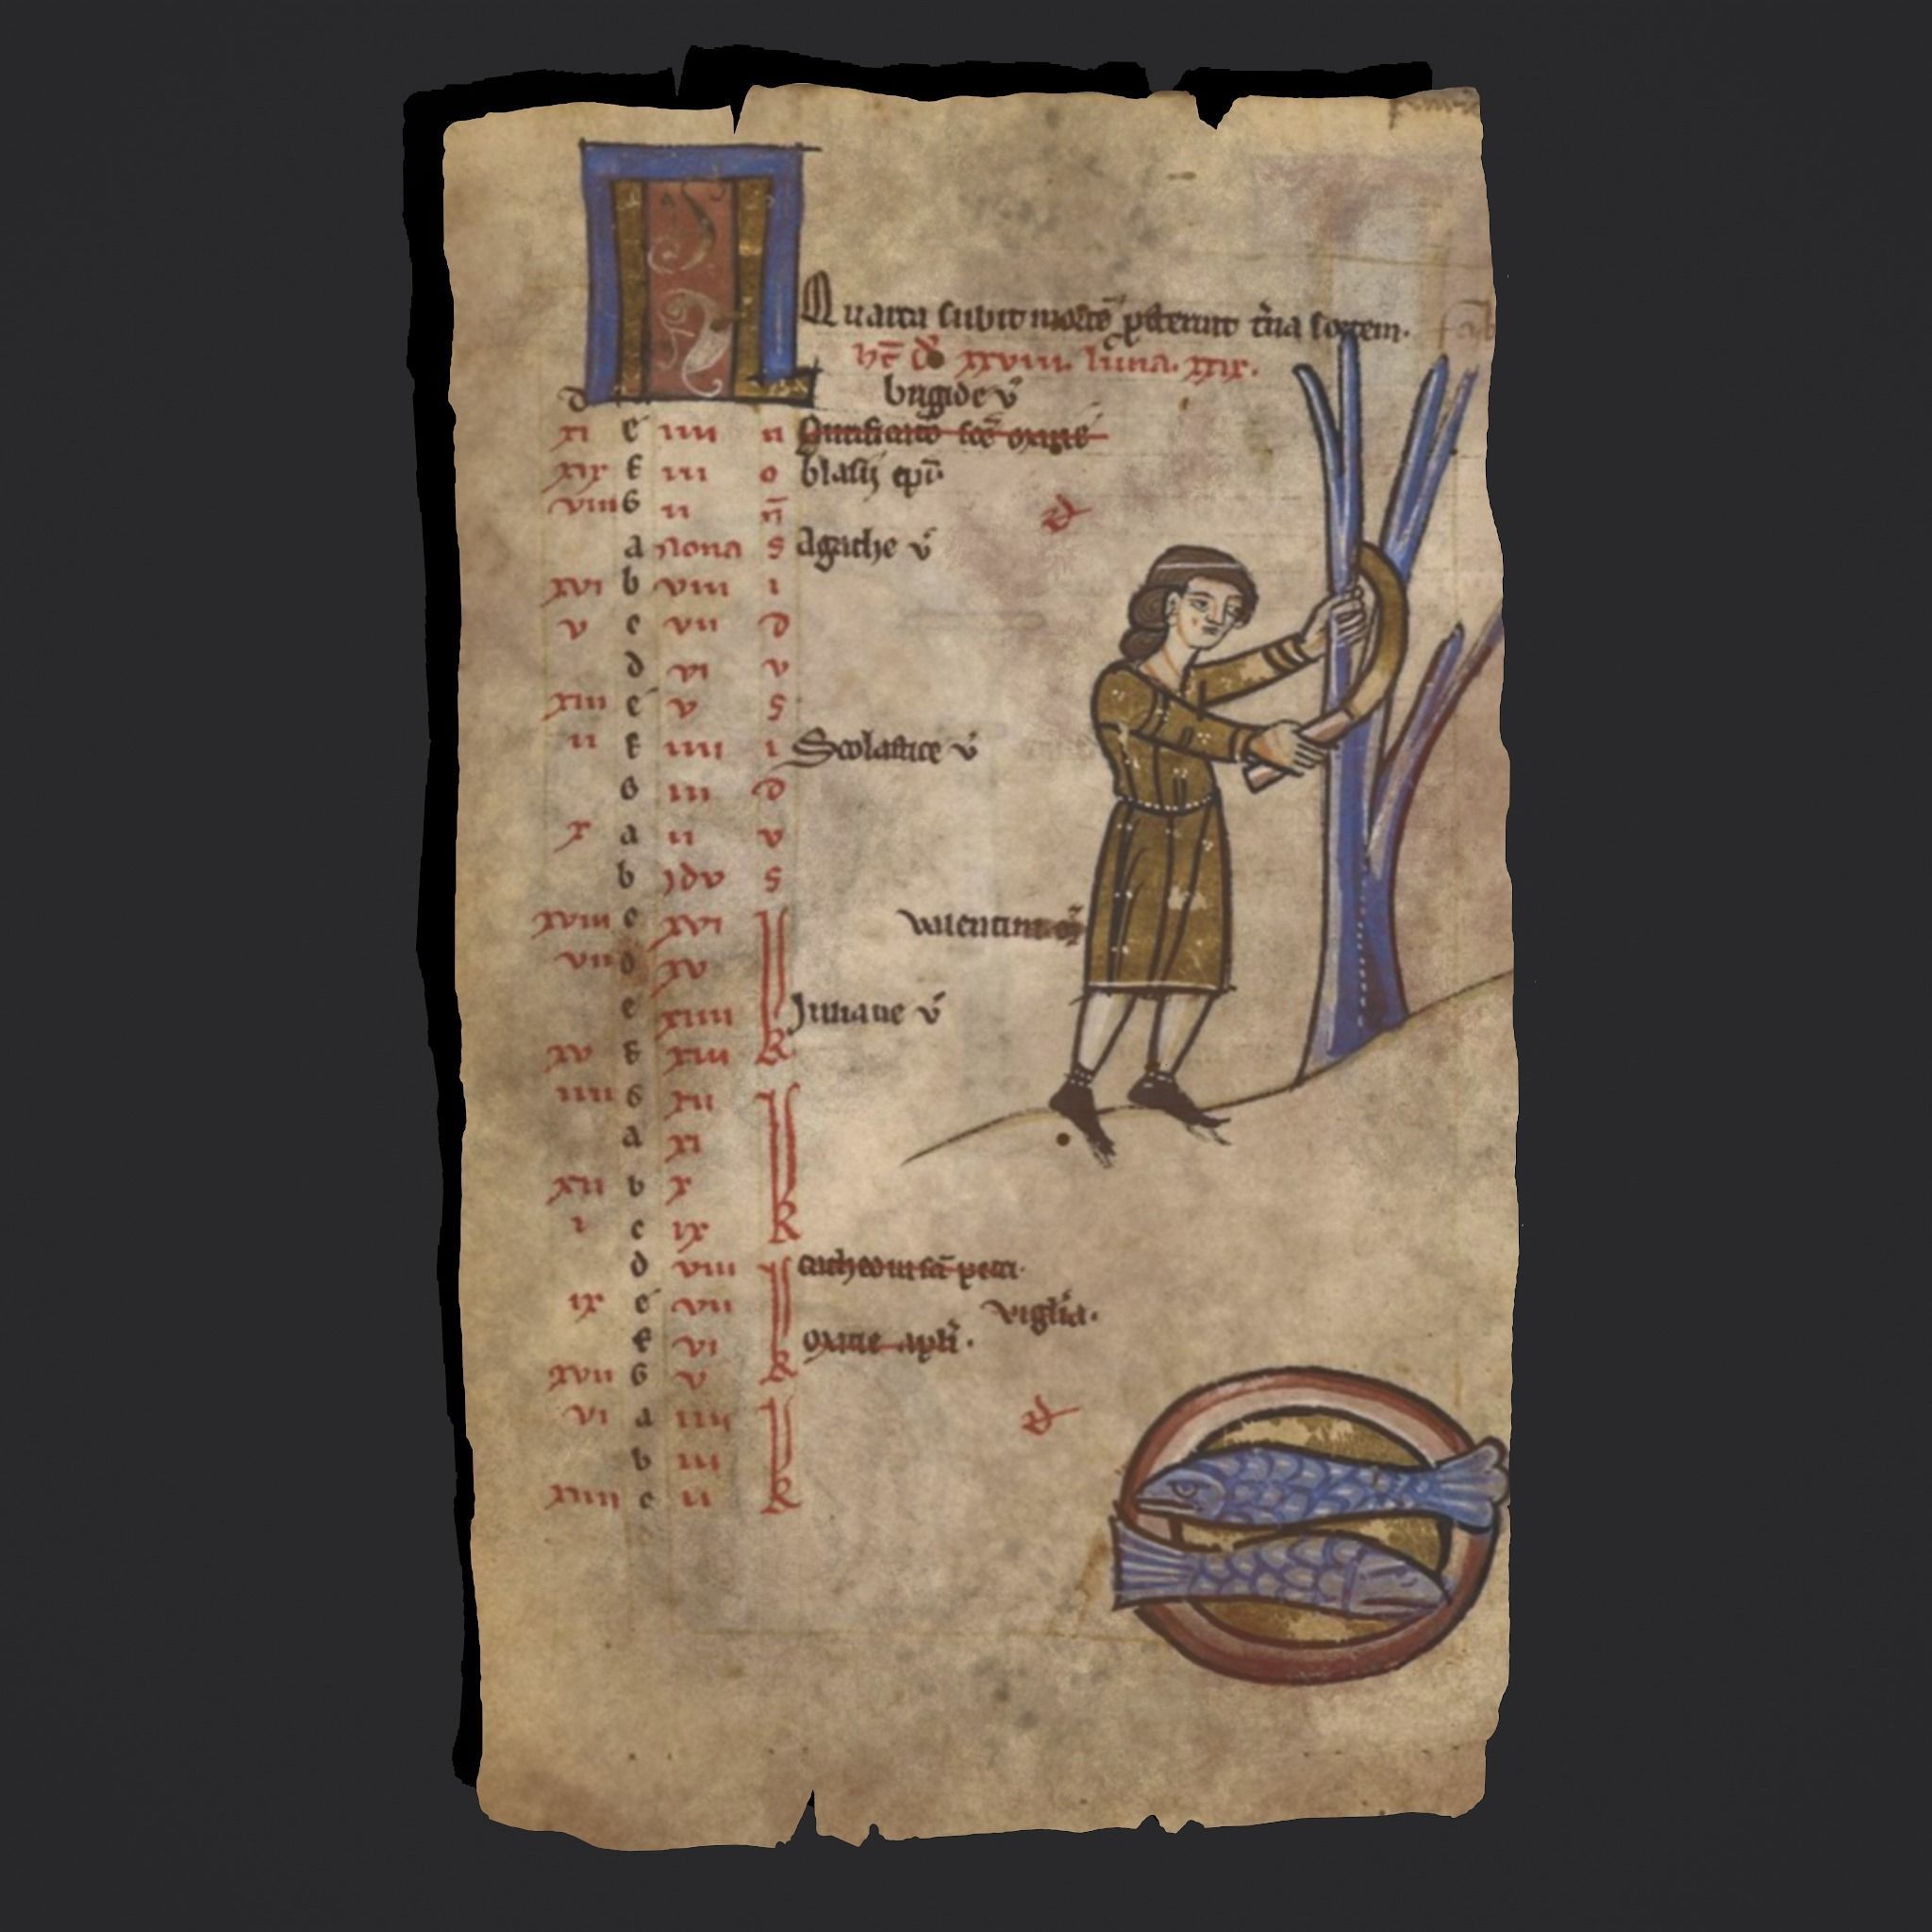 Quarta subit mortē ꝓsternit t̾cia fortem.
hꝫ d̾ xxviii. luna. xxix.
d brigide v̾
xi e iiii n Purificatio sc̄e marie
xix f iii o blasij epī
viii G ii n̄
a nona s Agathe v̾
xvi b viii i
v c vii D
d vi v
xiii e v s
ii f iiii i Scolastice v̾
G iii D
x a ii v
b Jdv s
xviii c xvi Valentini
vii d xv
e xiiii Juliane v̾
xv f xiii k
iiii G xii
a xi
xii b x
i c ix k
d viii cathedra sc̄i petri
ix e vii vigilia.
f vi
xvii G v k
vi a iiii
b iii
xiiii c ii k